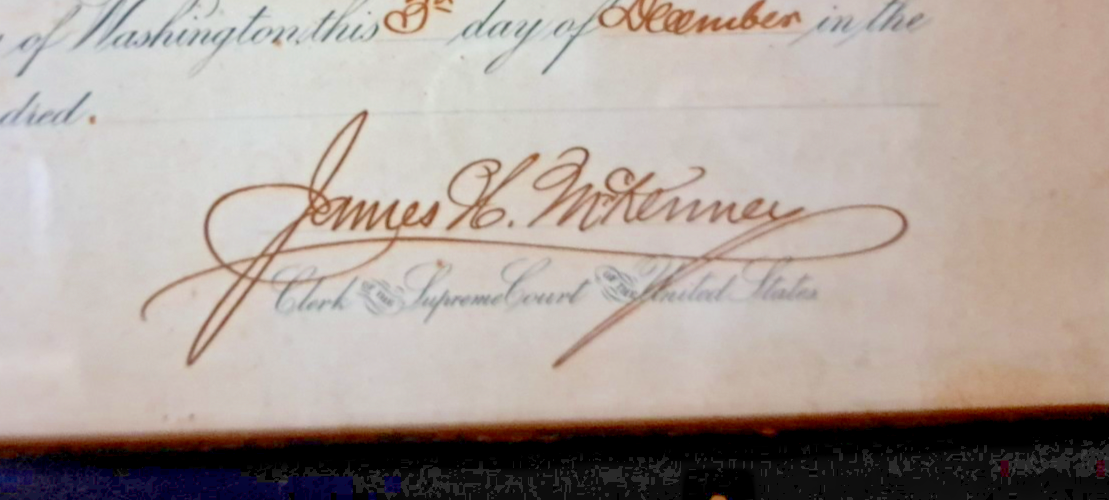 of Washington this 3rd day of December in the
dred.
James H. McKenney
Clerk OF THE Supreme Court OF THE United States